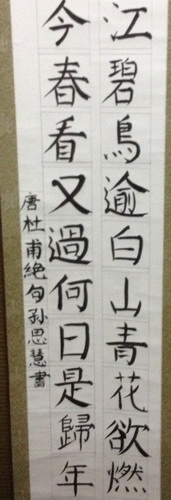 江碧鳥逾白山青花欲燃
今春看又過何日是歸年
唐杜甫絕句孫思慧書